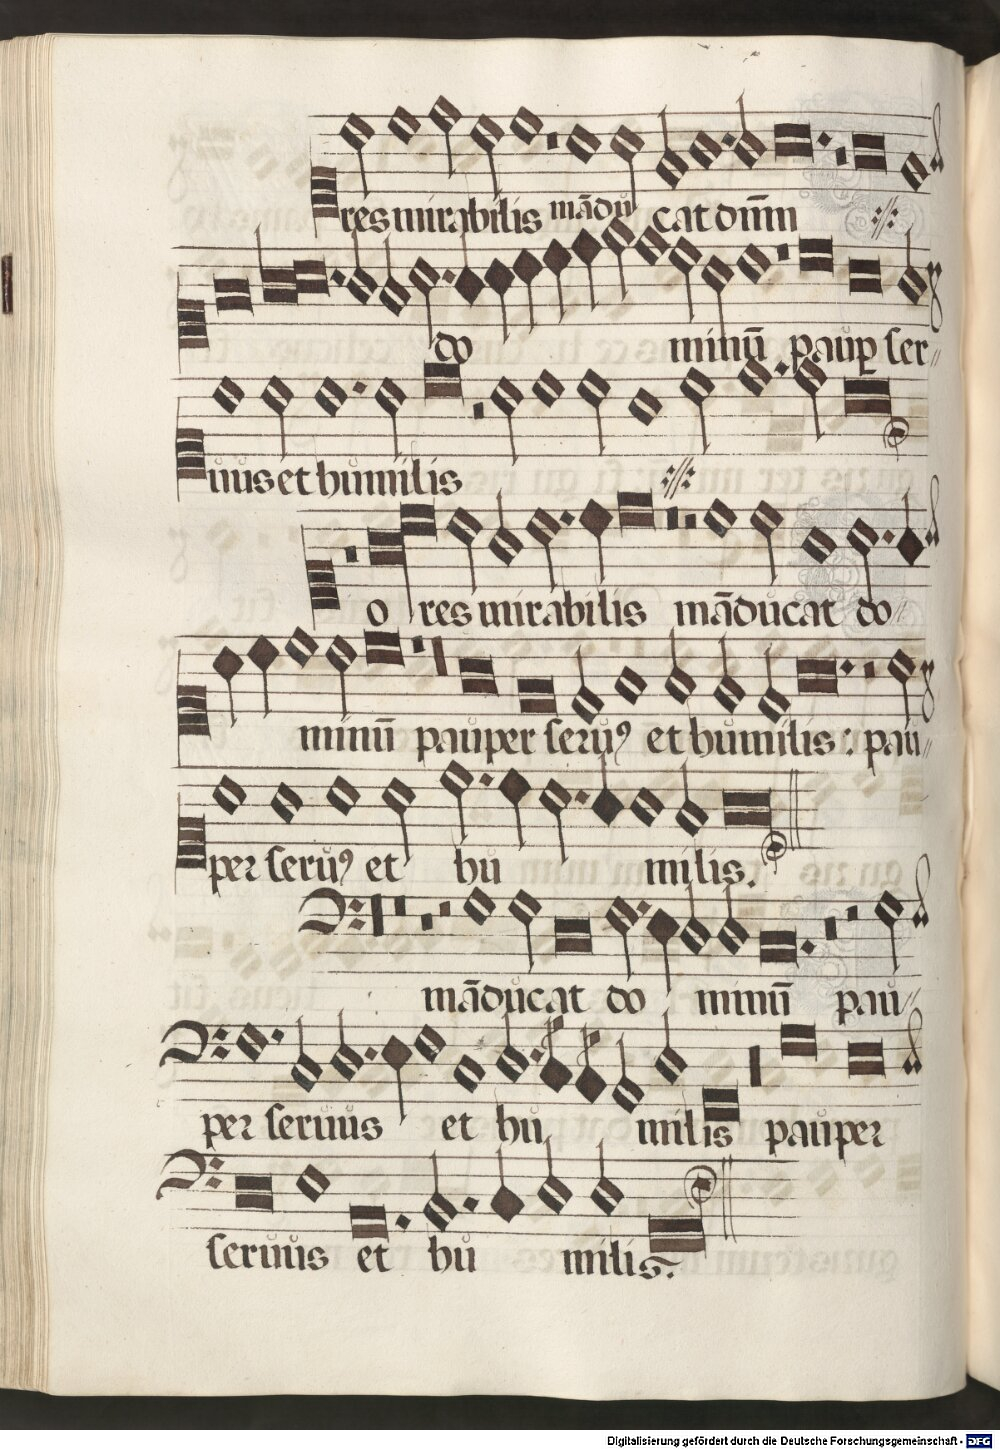 res mirabilis mādu cat dm̄m
do minū paup̲ ser⸗
uus et humilis
o res mirabilis māducat do⸗
minū pauper seruꝰ et humilis : pau⸗
per seruꝰ et hu milis.
māducat do minū pau⸗
per seruus et hu milis pauper
seruus et hu milis.
Digitalisierung gefördert durch die Deutsche Forschungsgemeinschaft - DFG